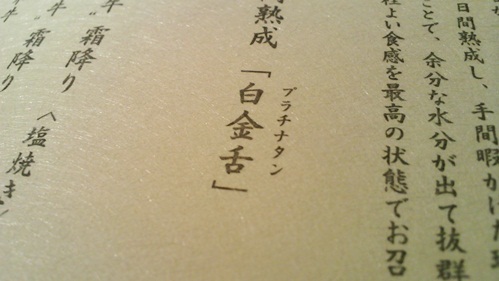 日間熟成し、手間暇かけた
ことで、余分な水分が出て抜群
よい食感を最高の状態でお召
熟成「白金舌」
プラチナタン
牛"霜降り〈塩焼き
牛"霜降り